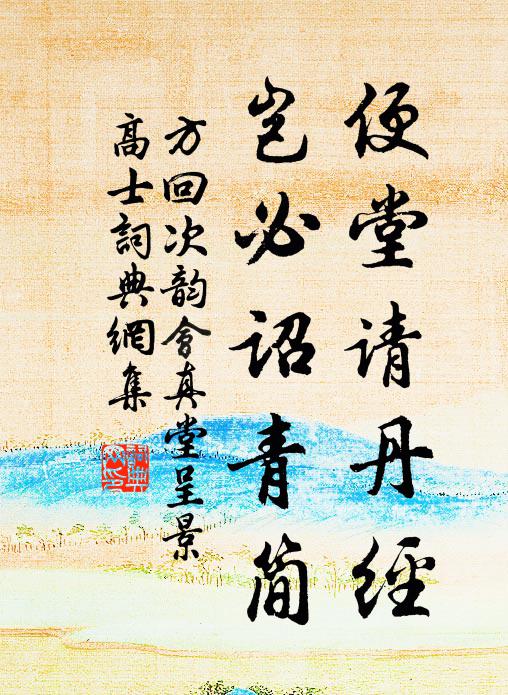 便堂请丹经
岂必诏青简
方回次韵会真堂呈景
高士词典网集